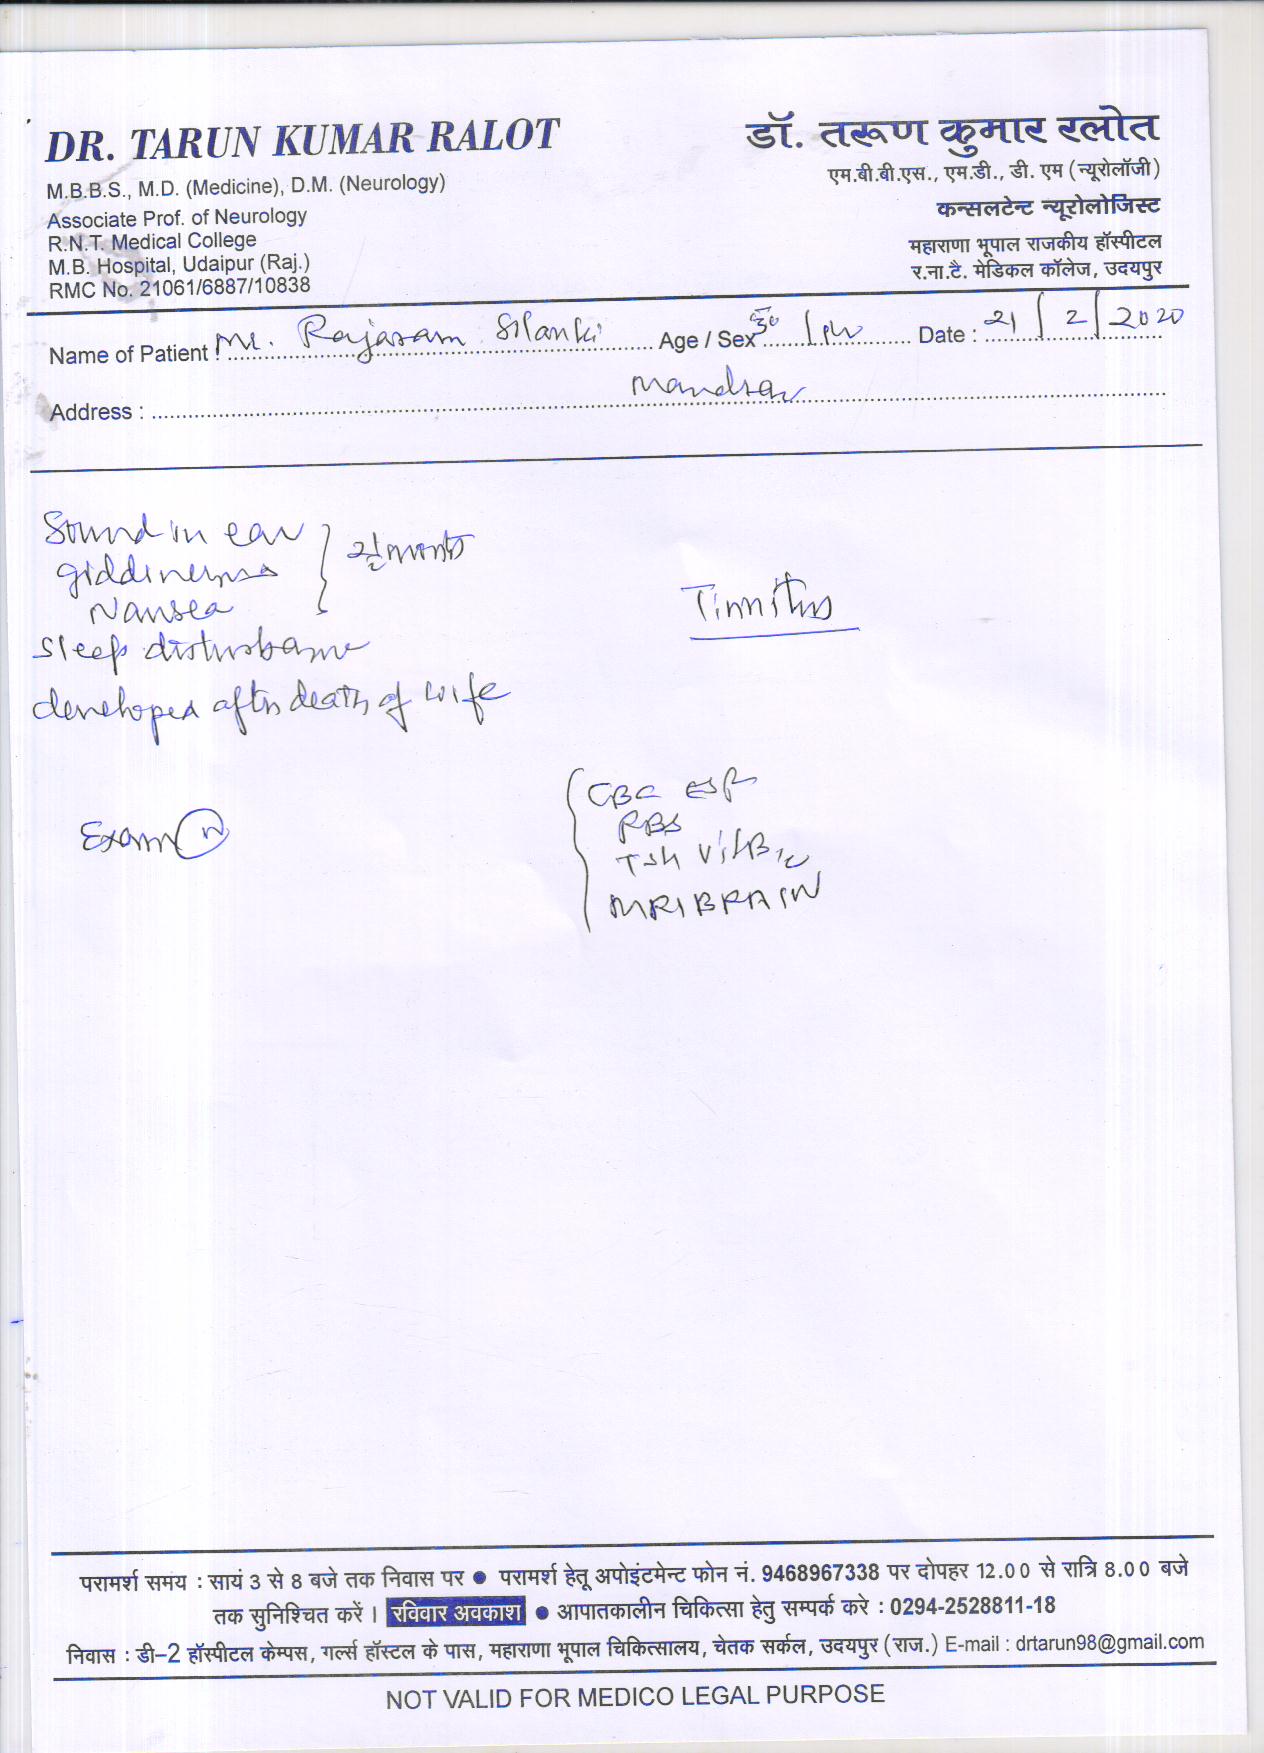 DR. TARUN KUMAR RALOT
M.B.B.S., M.D. (Medicine), D.M. (Neurology)
Associate Prof. of Neurology
R.N.T. Medical College
M.B. Hospital, Udaipur (Raj.)
RMC No. 21061/6887/10838
डॉ. तरूण कुमार रलोत
एम.बी.बी.एस., एम.डी., डी. एम (न्यूरोलॉजी)
कन्सलटेन्ट न्यूरोलोजिस्ट
महाराणा भूपाल राजकीय हॉस्पीटल
र.ना.टै. मेडिकल कॉलेज, उदयपुर
Name of Patient : Mr. Rajaram Age / Sex 30 / Date : 21/2/2020
Address :
Sound in ear
giddiness
Nausea
sleep disturbance
developed after death of wife
Tinnitus
Exam N
CBC ESR
RBS
TSH Vit B12
MRI BRAIN
परामर्श समय : सायं 3 से 8 बजे तक निवास पर ● परामर्श हेतु अपोइंटमेन्ट फोन नं. 9468967338 पर दोपहर 12.00 से रात्रि 8.00 बजे
तक सुनिश्चित करें । रविवार अवकाश ● आपातकालीन चिकित्सा हेतु सम्पर्क करे : 0294-2528811-18
निवास : डी–2 हॉस्पीटल केम्पस, गर्ल्स हॉस्टल के पास, महाराणा भूपाल चिकित्सालय, चेतक सर्कल, उदयपुर (राज.) E-mail : drtarun98@gmail.com
NOT VALID FOR MEDICO LEGAL PURPOSE